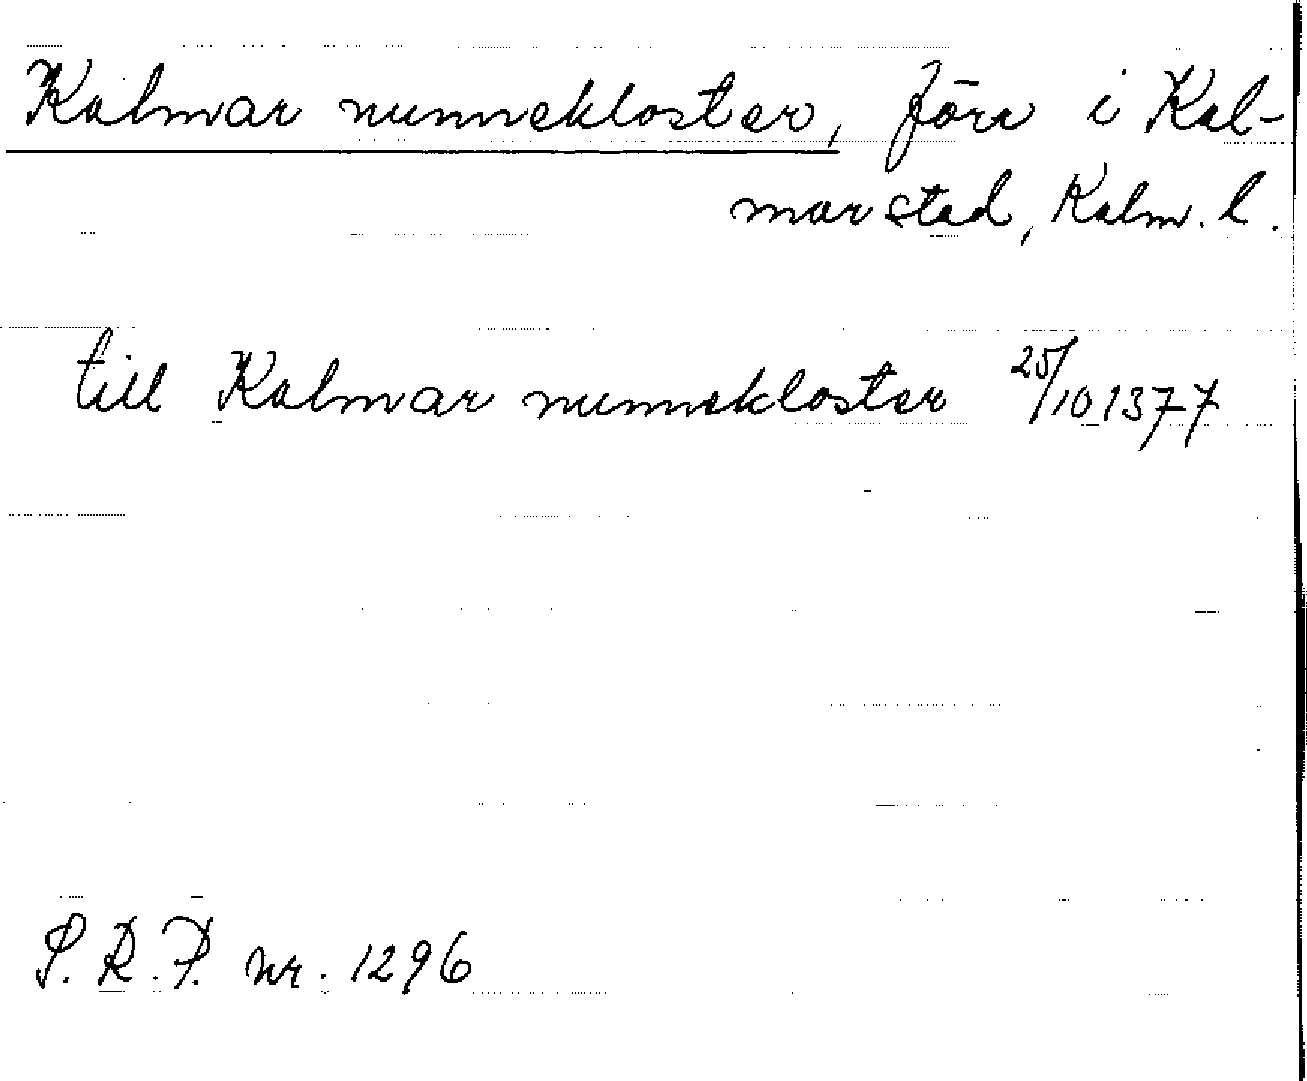 Kalmar nunnekloster, förr i Kal-
mar stad, Kalm. l.
till Kalmar nunnekloster 25/10 1377
S. R. P. nr. 1296